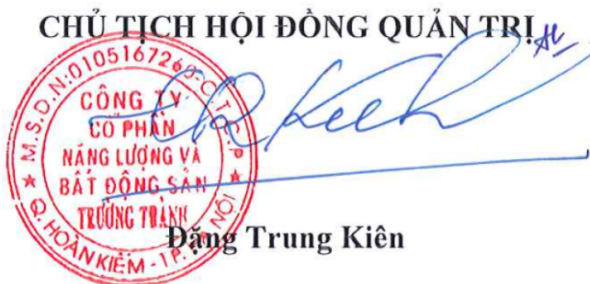 CHỦ TỊCH HỘI ĐỒNG QUẢN TRỊ
M.S.D.N:0105167260-C.T.C.P
CÔNG TY
CỔ PHẦN
NĂNG LƯỢNG VÀ
BẤT ĐỘNG SẢN
TRƯỜNG THÀNH
Q. HOÀN KIẾM - TP. HÀ NỘI
Đặng Trung Kiên